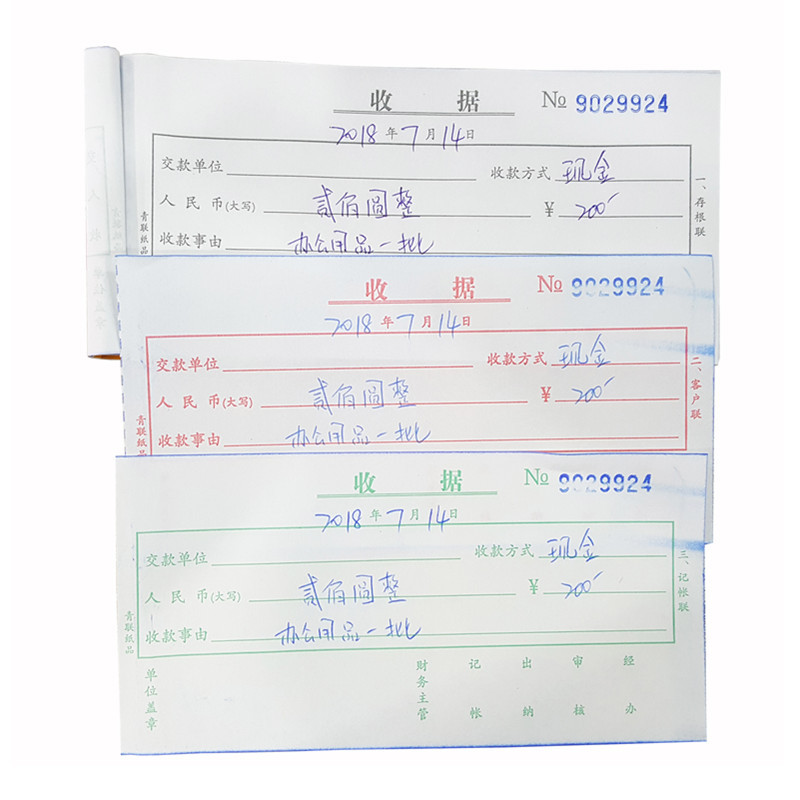 收 据 № 9029924
2018 年 7 月 14 日
交款单位 收款方式 现金
人民币(大写) 贰佰圆整 ¥ 200
收款事由 办公用品一批
一、存根联
青联纸品
收 据 № 9029924
2018 年 7 月 14 日
交款单位 收款方式 现金
人民币(大写) 贰佰圆整 ¥ 200
收款事由 办公用品一批
二、客户联
青联纸品
收 据 № 9029924
2018 年 7 月 14 日
交款单位 收款方式 现金
人民币(大写) 贰佰圆整 ¥ 200
收款事由 办公用品一批
三、记帐联
青联纸品
单位盖章 财务主管 记帐 出纳 审核 经办